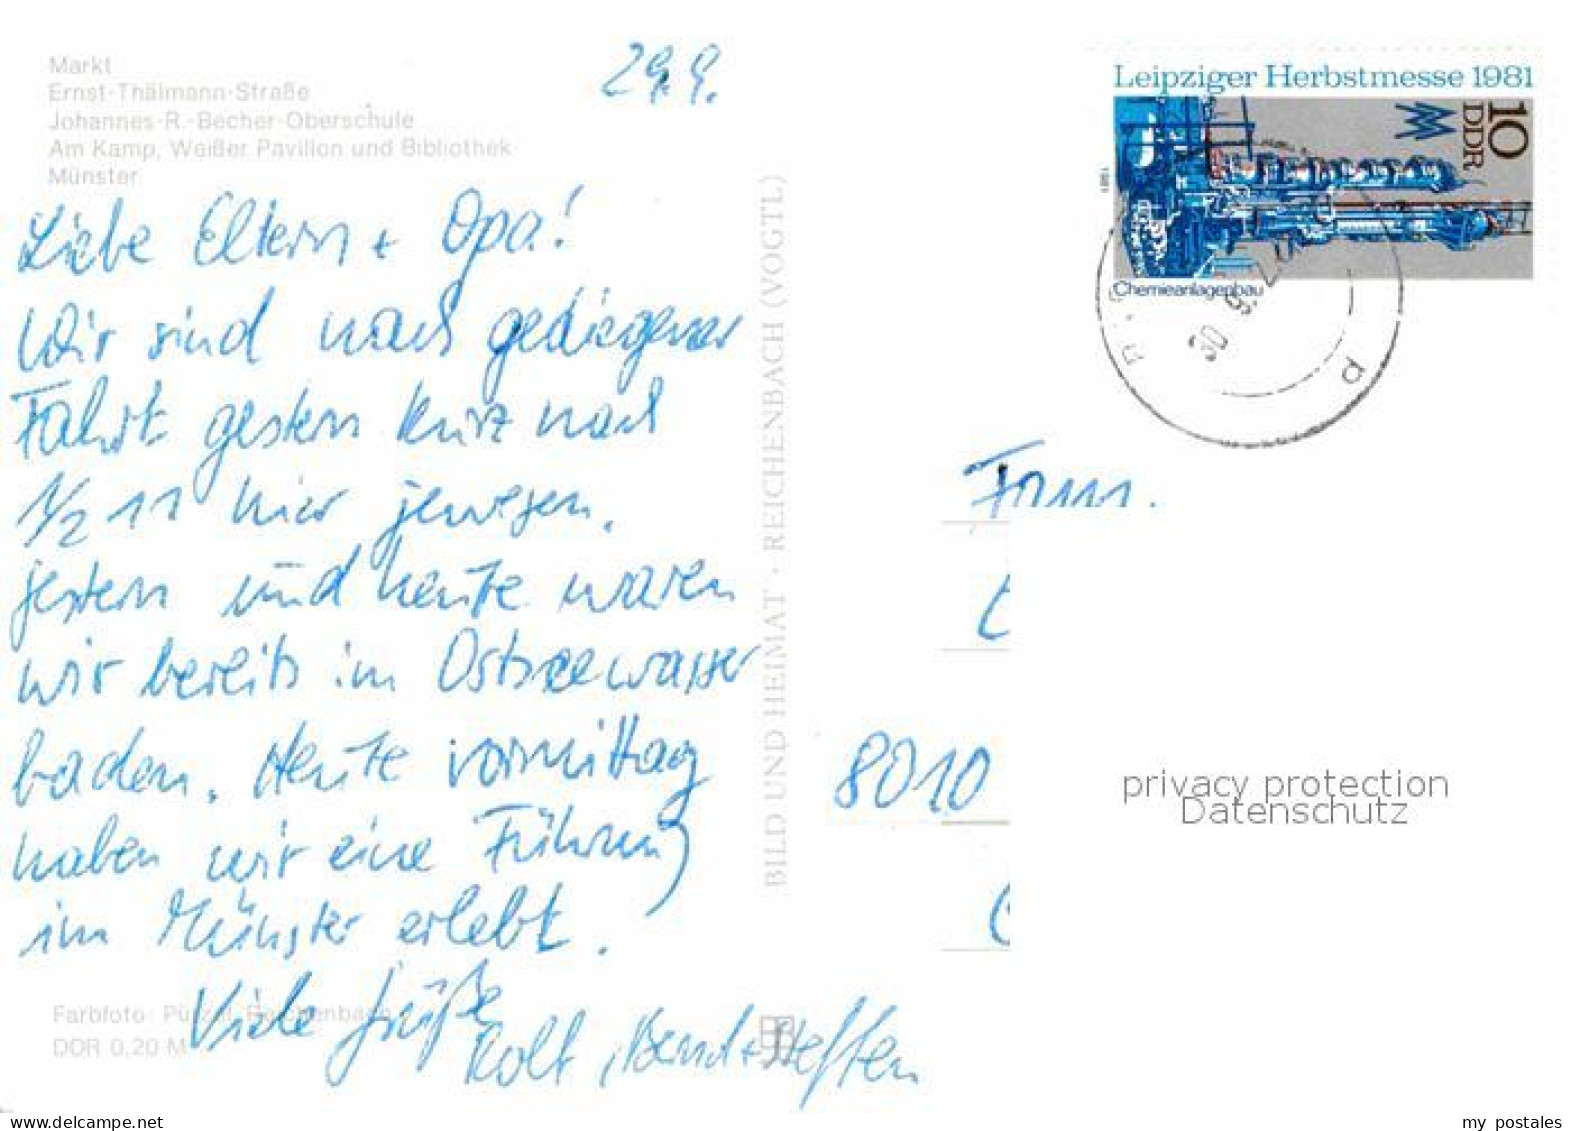 Markt
Ernst-Thälmann-Straße
Johannes-R.-Becher-Oberschule
Am Kamp, Weißer Pavillon und Bibliothek
Münster
29.9.
Liebe Eltern + Opa!
Wir sind nach gediegener
Fahrt gestern kurz nach
1/2 11 hier jewesen.
jestern und heute waren
wir bereits im Ostseewasser
baden. Heute vormittag
haben wir eine Führung
im Münster erlebt.
Viele Grüße
Rolf, Bernd + Steffen
Farbfoto: Reichenbach
DDR 0,20 M
BILD UND HEIMAT · REICHENBACH (VOGTL)
Leipziger Herbstmesse 1981
10
DDR
1981
Chemieanlagenbau
30. 9.
Fam.
8010
privacy protection
Datenschutz
delcampe.net
my_postales